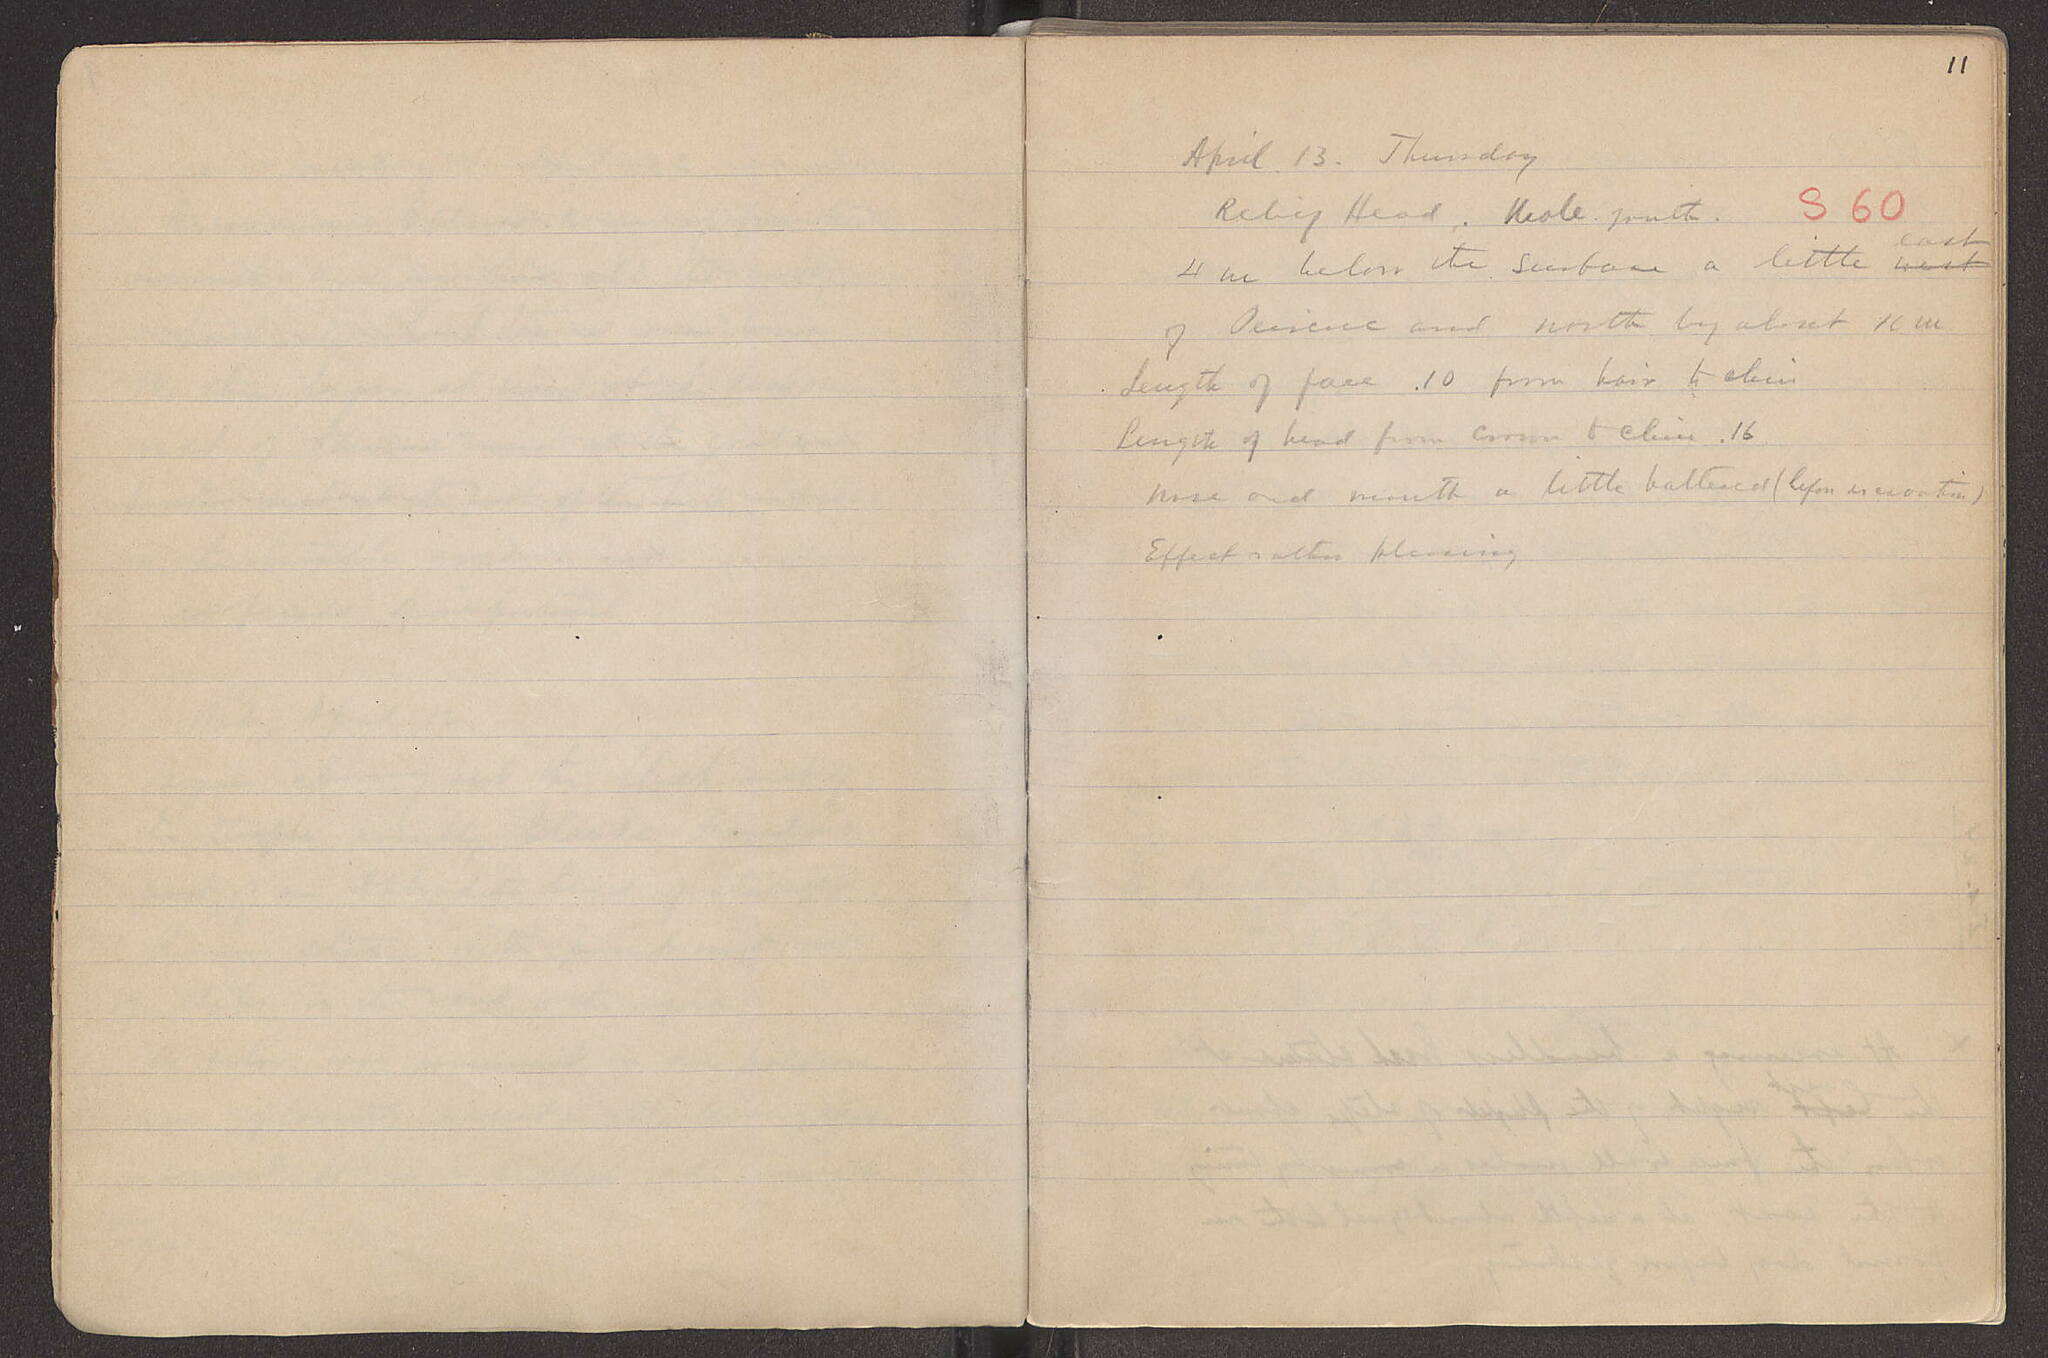 11
April 13. Thursday
Relief Head. Male youth. S 60
4 m below the surface a little west east
of Peirene and north by about m
Length of face .10 from hair to chin
Length of head from crown to chin .16
nose and mouth a little battered (before excavation)
Effect rather pleasing